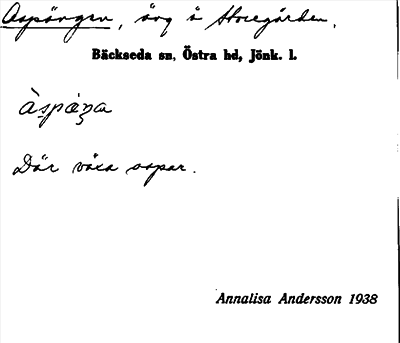 Aspängen, äng å Storegården.
Bäckseda sn, Östra hd, Jönk. l.
Där växa aspar.
Annalisa Andersson 1938